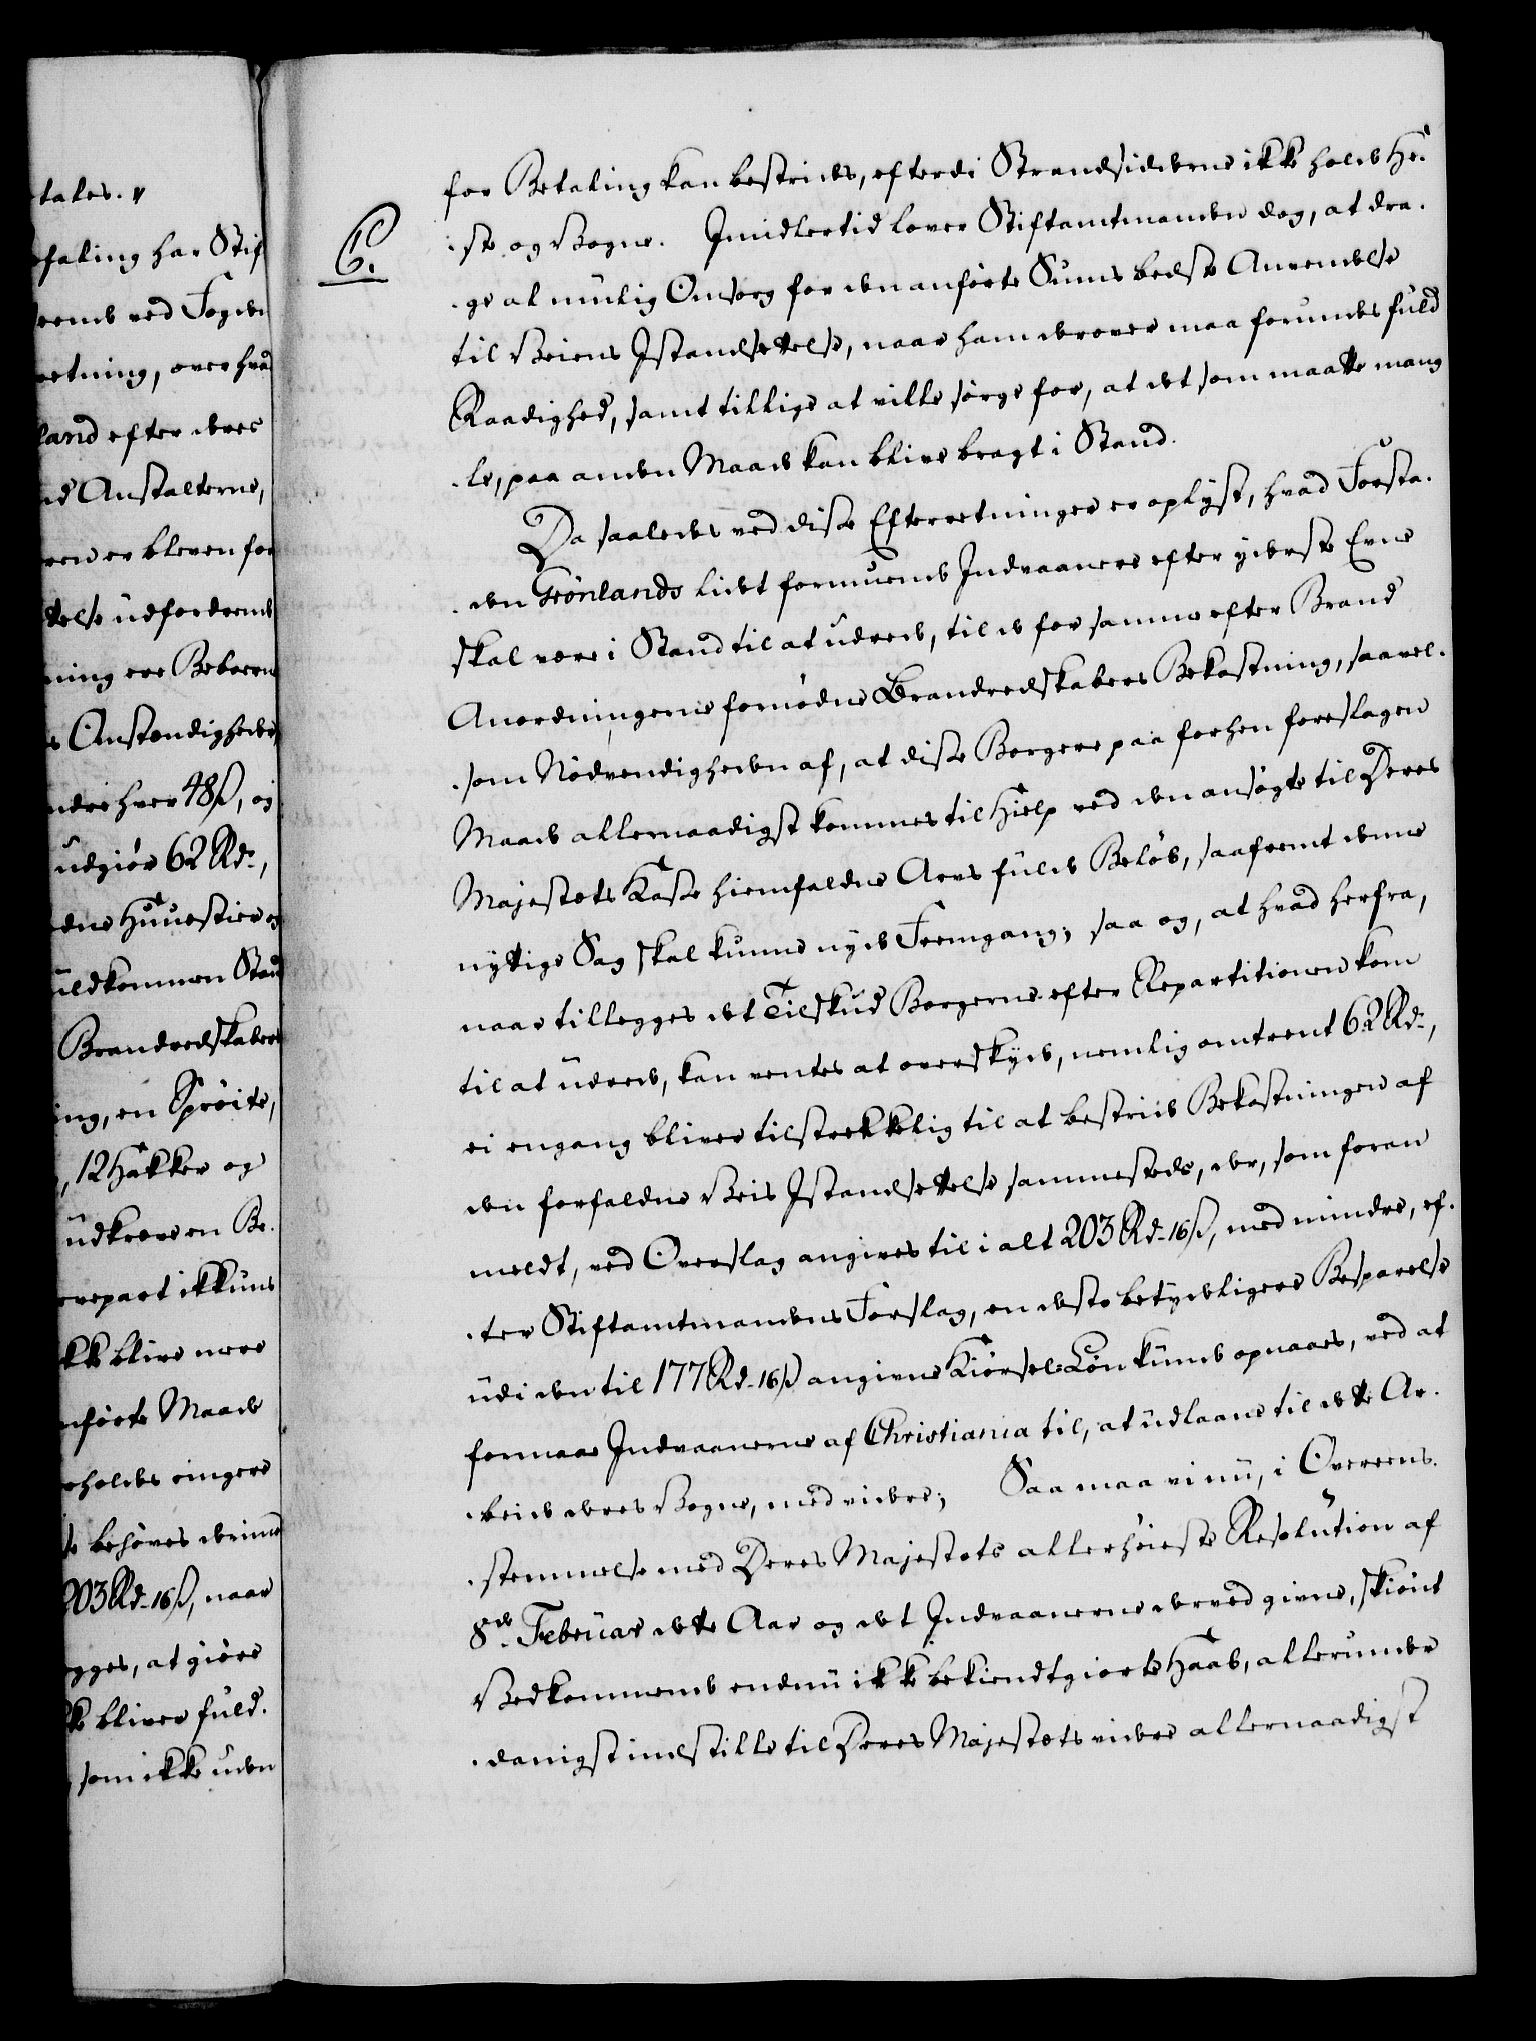 tales.
faling har Stif
rende ved Fogden
retning, over hvad
land efter deres
nd Anstalterne,
ren er bleven for
telse udfordrende
ning ere Beboern
s Omstændigheder,
ndre hver 48 ß, og
udgiør 62 Rdr,
dne Huusstier og
uldkommen Stan
Brandredskaber
ing, en Sprøite,
, 12 Hakker og
udkræve en Be-
verpart ikkuns
kke blive mere
nførte Maade
eholdes ringere
te behøves derimod
203 Rd. 16 ß, naar
egges, at giøre
ke bliver fuld-
som ikke uden
6.
for Betaling kan bestrides, efterdi Strandsiderne ikke holde He-
-ste og Vogne. Imidlertid lover Stiftamtmanden dog, at dra-
-ge al mulig Omsorg for den anførte Sums bedste Anvendelse
til Veiens Istandsættelse, naar ham derover maa forundes fuld
Raadighed, samt tillige at ville sørge for, at det som maatte mang
-le, paa anden Maade kan blive bragt i Stand.
Da saaledes ved disse Efterretninger er oplyst, hvad Forsta-
-den Grönlands lidet formuende Indvaanere efter yderste Evne
skal være i Stand til at udrede, til de for samme efter Brand
Anordningerne fornødne Brandredskabers Bekostning, saavel-
-som Nødvendigheden af, at disse Borgere paa forhen foreslagen
Maade allernaadigst kommes til Hielp ved den ansøgte til Deres
Majestæts Kasse hiemfaldne Arvs fulde Beløb, saafremt denne
nyttige Sag skal kunne nyde Fremgang; saa og, at hvad herfra,
naar tillegges det Tilskud Borgerne efter Repartitionen kom
til at udrede, kan ventes at overskyde, nemlig omtrent 62 Rdr,
ei engang bliver tilstrekkelig til at bestride Bekostningen af
den forfaldne Veis Istandsættelse sammesteds, der, som foran
meldt, ved Overslag angives til i alt 203 Rd. 16 ß, med mindre, ef-
-ter Stiftamtmandens Forslag, en desto betydeligere Besparelse
udi den til 177 Rd. 16 ß angivne Kiørsel-Løn kunde opnaaes, ved at
formaae Indvaanerne af Christiania til, at udlaane til dette Ar-
-beide deres Vogne, med videre; Saa maa vi nu, i Overeens-
-stemmelse med Deres Majestæts allerhøieste Resolution af
8de Februar dette Aar og det Indvaanerne derved givne, skiønt
Vedkommende endnu ikke bekiendtgiorte Haab, allerunder
-danigst indstille til Deres Majestæts videre allernaadigst